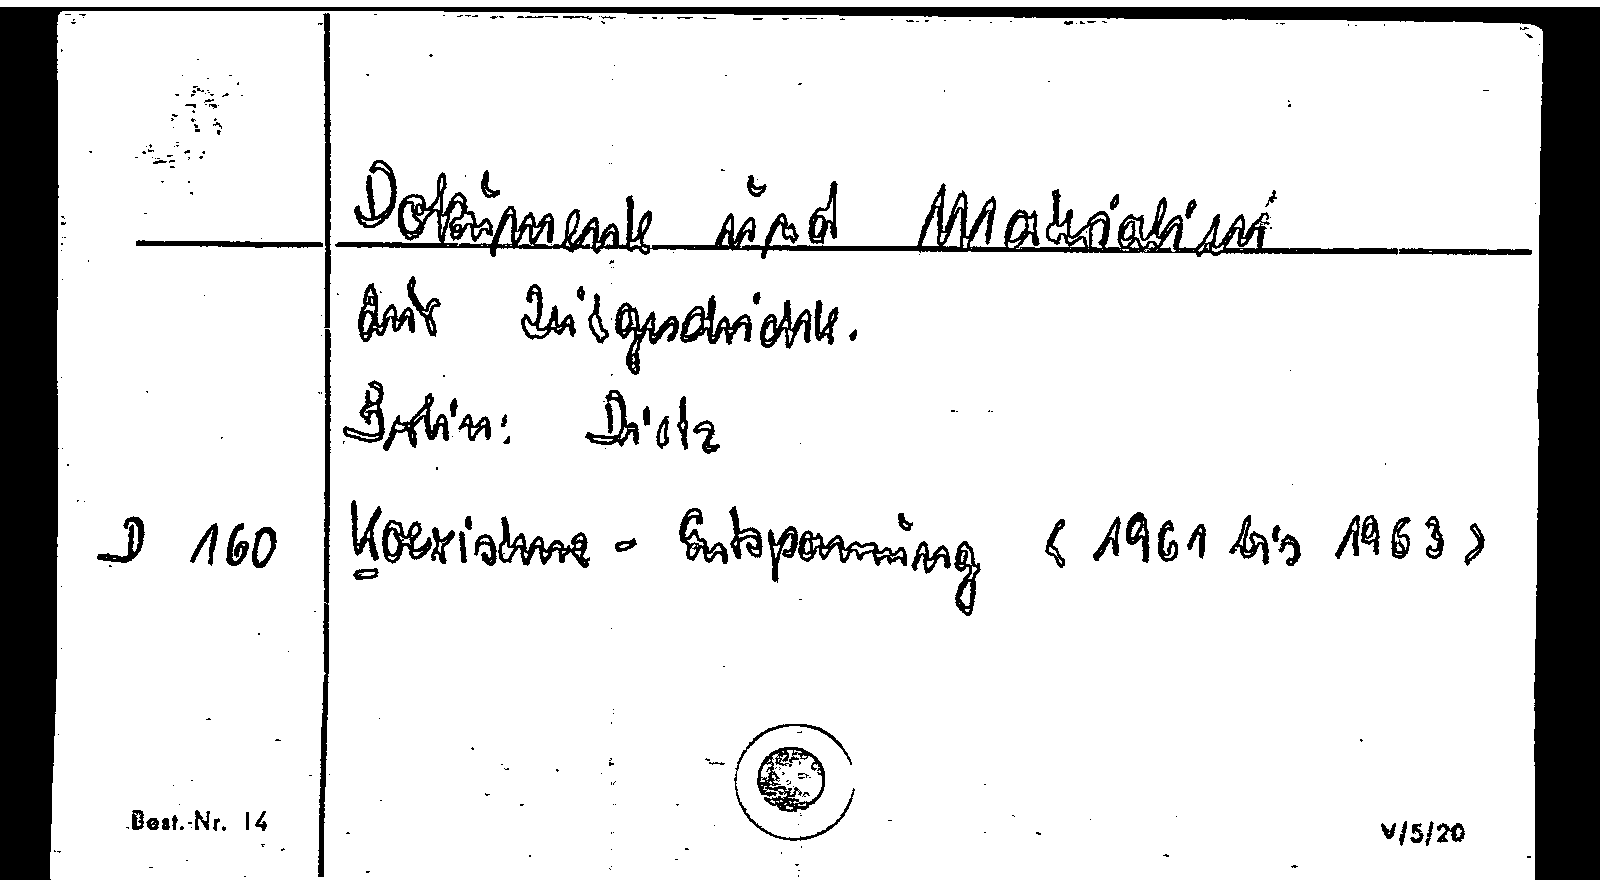 Dokumente und Materialien
der Zeitgeschichte.
Berlin: Dietz
D 160 Koexistenz - Entspannung <1961 bis 1963>
Best.-Nr. 14
V/5/20